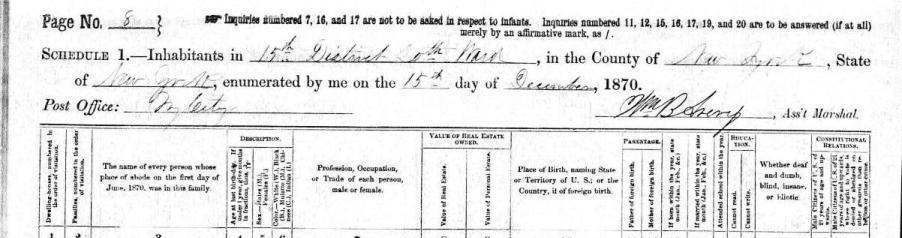 Page No. 8
Inquiries numbered 7, 16, and 17 are not to be asked in respect to infants. Inquiries numbered 11, 12, 15, 16, 17, 19, and 20 are to be answered (if at all)
merely by an affirmative mark, as /.
SCHEDULE 1.—Inhabitants in 15th District 20th Ward, in the County of New York, State
of New York, enumerated by me on the 15th day of December, 1870.
Post Office: N Y City
Wm B, Ass't Marshal.
DESCRIPTION.
VALUE OF REAL ESTATE OWNED.
PARENTAGE.
EDUCATION.
CONSTITUTIONAL RELATIONS.
Dwelling-houses, numbered in the order of visitation.
Families, numbered in the order of visitation.
The name of every person whose place of abode on the first day of June, 1870, was in this family.
Age at last birth-day. If under 1 year, give months in fractions, thus, 3/12
Sex.—Males (M.), Females (F.)
Color.—White (W.), Black (B.), Mulatto (M.), Chinese (C.), Indian (I.)
Profession, Occupation, or Trade of each person, male or female.
Value of Real Estate.
Value of Personal Estate.
Place of Birth, naming State or Territory of U. S.; or the Country, if of foreign birth.
Father of foreign birth.
Mother of foreign birth.
If born within the year, state month (Jan., Feb., &c.)
If married within the year, state month (Jan., Feb., &c.)
Attended school within the year.
Cannot read.
Cannot write.
Whether deaf and dumb, blind, insane, or idiotic.
Male Citizens of U. S. of 21 years of age and upwards.
1 2 3